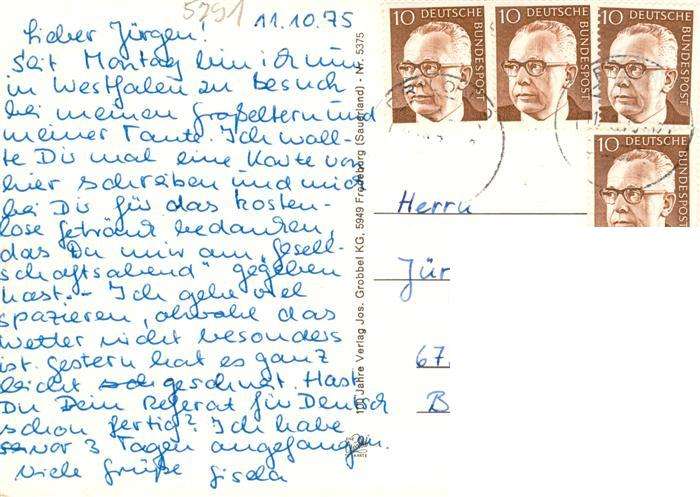 5291
11.10.75
Lieber Jürgen!
Seit Montag bin ich nun
in Westfalen zu Besuch
bei meinen Großeltern und
meiner Tante. Ich woll-
te Dir mal eine Karte von
hier schreiben und mich
bei Dir für das kosten-
lose Getränk bedanken,
das Du mir am "Gesell-
schaftsabend" gegeben
hast. - Ich gehe viel
spazieren, obwohl das
Wetter nicht besonders
ist. Gestern hat es ganz
leicht geschneit. Hast
Du Dein Referat für Deutsch
schon fertig? Ich habe
vor 3 Tagen angefangen.
Viele Grüße Gisela
100 Jahre Verlag Jos. Grobbel KG, 5949 Fredeburg (Sauerland) · Nr. 5375
10 DEUTSCHE BUNDESPOST
10 DEUTSCHE BUNDESPOST
10 DEUTSCHE BUNDESPOST
10 DEUTSCHE BUNDESPOST
Herrn
Jür
67
B